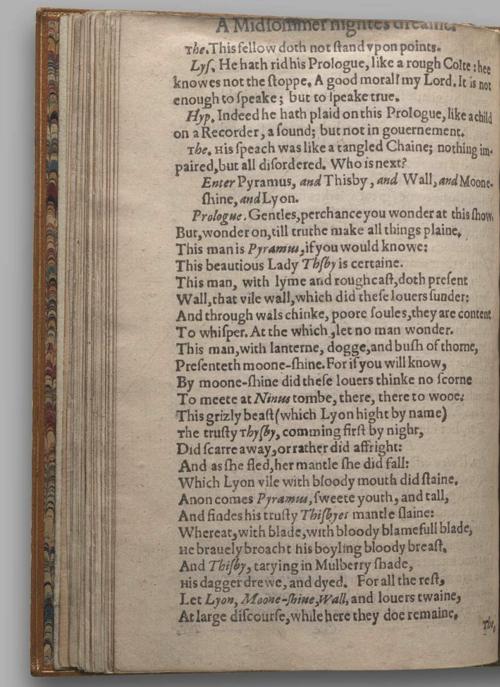 A Midsommer nightes dreame.
The. This fellow doth not stand vpon points.
Lys. He hath rid his Prologue, like a rough Colte: hee
knowes not the stoppe. A good morall my Lord. It is not
enough to speake; but to speake true.
Hyp. Indeed he hath plaid on this Prologue, like a child
on a Recorder, a sound; but not in gouernement.
The. His speach was like a tangled Chaine; nothing im-
paired, but all disordered. Who is next?
Enter Pyramus, and Thisby, and Wall, and Moone-
shine, and Lyon.
Prologue. Gentles, perchance you wonder at this show,
But, wonder on, till truthe make all things plaine.
This man is Pyramus, if you would knowe:
This beautious Lady Thsby is certaine.
This man, with lyme and roughcast, doth present
Wall, that vile wall, which did these louers sunder:
And through wals chinke, poore soules, they are content
To whisper. At the which, let no man wonder.
This man, with lanterne, dogge, and bush of thorne,
Presenteth moone-shine. For if you will know,
By moone-shine did these louers thinke no scorne
To meete at Ninus tombe, there, there to wooe:
This grizly beast (which Lyon hight by name)
The trusty Thysby, comming first by night,
Did scarre away, or rather did affright:
And as she fled, her mantle she did fall:
Which Lyon vile with bloody mouth did staine.
Anon comes Pyramus, sweete youth, and tall,
And findes his trusty Thisbyes mantle slaine:
Whereat, with blade, with bloody blamefull blade,
He brauely broacht his boyling bloody breast.
And Thisby, tarying in Mulberry shade,
His dagger drewe, and dyed. For all the rest,
Let Lyon, Moone-shine, Wall, and louers twaine,
At large discourse, while here they doe remaine.
The,